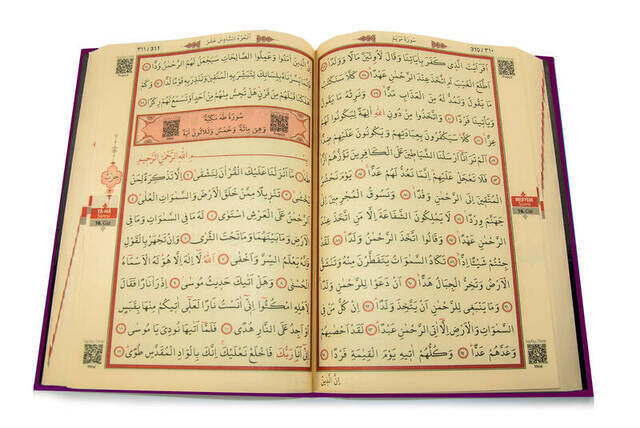 ٣١٠ / 310
سورة مريم
افرايت الذي كفر باياتنا وقال لاوتين مالا وولدا
اطلع الغيب ام اتخذ عند الرحمن عهدا كلا سنكتب
ما يقول ونمد له من العذاب مدا ونرثه ما يقول
وياتينا فردا واتخذوا من دون الله الهة ليكونوا لهم
عزا كلا سيكفرون بعبادتهم ويكونون عليهم ضدا
الم تر انا ارسلنا الشياطين على الكافرين تؤزهم ازا
فلا تعجل عليهم انما نعد لهم عدا يوم نحشر
المتقين الى الرحمن وفدا ونسوق المجرمين الى
جهنم وردا لا يملكون الشفاعة الا من اتخذ عند
الرحمن عهدا وقالوا اتخذ الرحمن ولدا لقد
جئتم شيئا ادا تكاد السموات يتفطرن منه وتنشق
الارض وتخر الجبال هدا ان دعوا للرحمن ولدا
وما ينبغي للرحمن ان يتخذ ولدا ان كل من في
السموات والارض الا اتي الرحمن عبدا لقد احصيهم
وعدهم عدا وكلهم اتيه يوم القيمة فردا
ان الذين
MERYEM
Suresi
16. Cüz
٣١١ / 311
الجزء السادس عشر
ان الذين امنوا وعملوا الصالحات سيجعل لهم الرحمن ودا
فانما يسرناه بلسانك لتبشر به المتقين وتنذر به قوما لدا
وكم اهلكنا قبلهم من قرن هل تحس منهم من احد او تسمع لهم ركزا
سورة طه مكية
وهي مائة وخمس وثلاثون اية
بسم الله الرحمن الرحيم
طه ما انزلنا عليك القران لتشقى الا تذكرة لمن
يخشى تنزيلا ممن خلق الارض والسموات العلى
الرحمن على العرش استوى له ما في السموات وما في
الارض وما بينهما وما تحت الثرى وان تجهر بالقول
فانه يعلم السر واخفى الله لا اله الا هو له الاسماء
الحسنى وهل اتيك حديث موسى اذ را نارا فقال
لاهله امكثوا اني انست نارا لعلي اتيكم منها بقبس
او اجد على النار هدى فلما اتيها نودي يا موسى
اني انا ربك فاخلع نعليك انك بالواد المقدس طوى
TÂ-HÂ
Suresi
16. Cüz